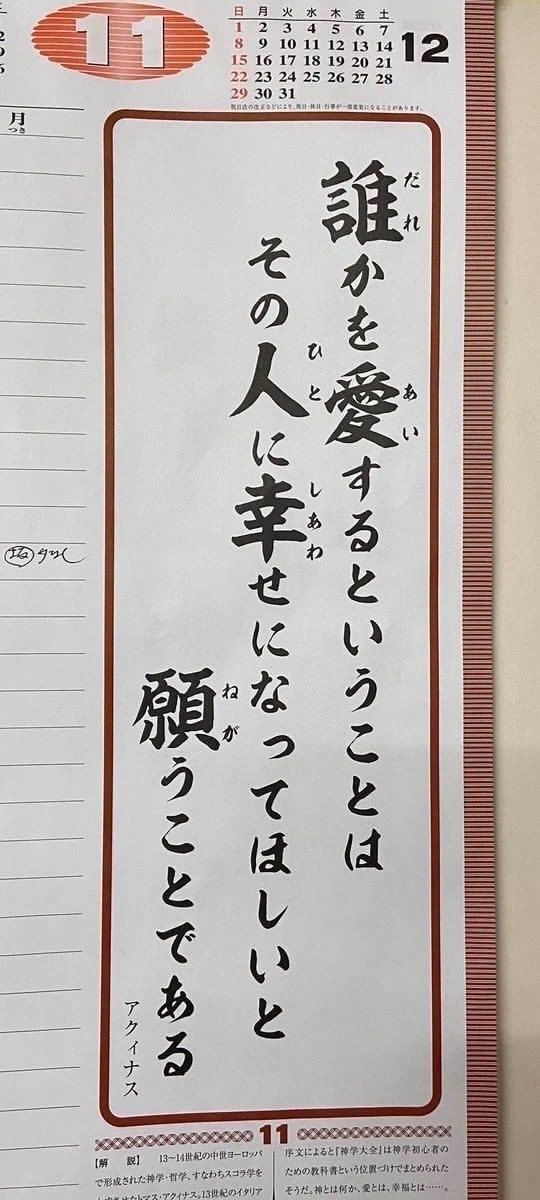 11
日 月 火 水 木 金 土
1 2 3 4 5 6 7
8 9 10 11 12 13 14
15 16 17 18 19 20 21
22 23 24 25 26 27 28
29 30 31
12
祝日法の改正などにより、祝日・休日・行事が一部変更になることがあります。
月
つき
誰かを愛するということは
だれ
あい
その人に幸せになってほしいと
ひと
しあわ
願うことである
ねが
アクィナス
11
【解 説】 13〜14世紀の中世ヨーロッパ
で形成された神学・哲学、すなわちスコラ学を
させたトマス・アクィナス。13世紀のイタリア
序文によると『神学大全』は神学初心者の
ための教科書という位置づけでまとめられた
そうだ。神とは何か、愛とは、幸福とは……。